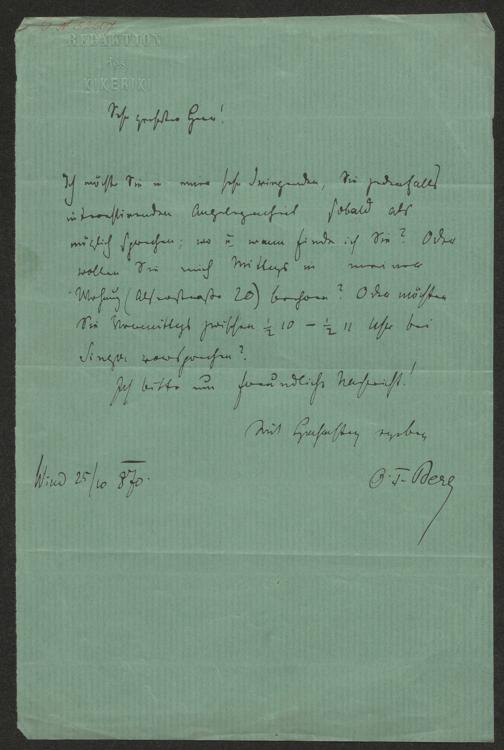 REDAKTION
des
KIKERIKI
Sehr geehrter Herr!
Ich möchte Sie in einer sehr dringenden, Sie jedenfalls
interessirenden Angelegenheit sobald als
möglich sprechen; wo u wann finde ich Sie? Oder
wollen Sie mich Mittags in meiner
Wohnung (Alserstraße 20) beehren? Oder möchten
Sie Vormittags zwischen ½ 10 – ½ 11 Uhr bei
Singer vorsprechen?
Ich bitte um freundliche Nachricht!
Mit Hochachtung ergeben
Wien 25/10 870.
O. F. Berg